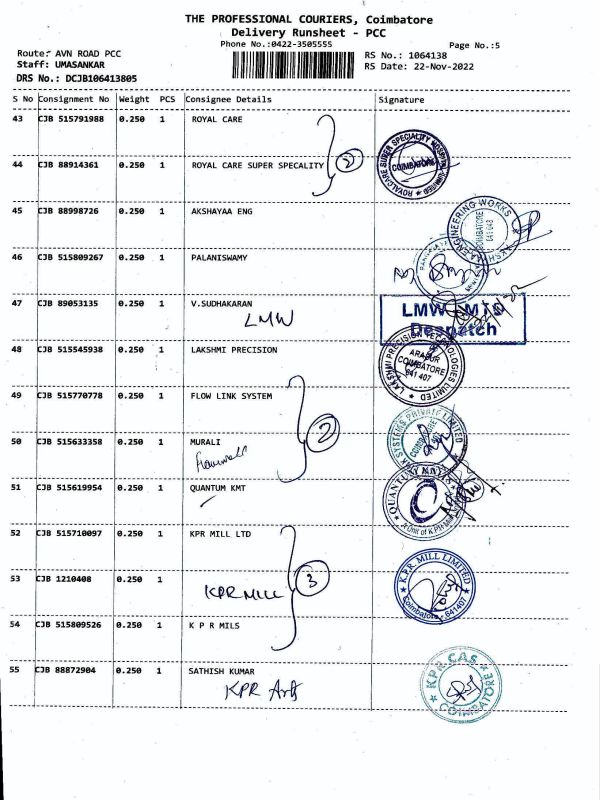 THE PROFESSIONAL COURIERS, Coimbatore
Delivery Runsheet - PCC
Phone No.:0422-3505555
Page No.:5
Route: AVN ROAD PCC
RS No.: 1064138
Staff: UMASANKAR
RS Date: 22-Nov-2022
DRS No.: DCJB106413805
S No Consignment No Weight PCS Consignee Details Signature
43 CJB 515791988 0.250 1 ROYAL CARE
2
ROYALCARE SUPER SPECIALITY HOSPITAL LIMITED
COIMBATORE
44 CJB 88914361 0.250 1 ROYAL CARE SUPER SPECALITY
45 CJB 88998726 0.250 1 AKSHAYAA ENG
ENGINEERING WORKS
COIMBATORE
641 048
46 CJB 515809267 0.250 1 PALANISWAMY
47 CJB 89053135 0.250 1 V.SUDHAKARAN
LMW
LMW MTD
Despatch
48 CJB 515545938 0.250 1 LAKSHMI PRECISION
LAKSHMI PRECISION TECHNOLOGIES LIMITED
ARASUR
COIMBATORE
641 407
49 CJB 515770778 0.250 1 FLOW LINK SYSTEM
2
SYSTEMS PRIVATE LIMITED
50 CJB 515633358 0.250 1 MURALI
51 CJB 515619954 0.250 1 QUANTUM KMT
QUANTUM
A Unit of K.P.R Mill
52 CJB 515710097 0.250 1 KPR MILL LTD
53 CJB 1210408 0.250 1
KPR MILL
3
K.P.R. MILL LIMITED
Coimbatore - 641407
54 CJB 515809526 0.250 1 K P R MILS
55 CJB 88872904 0.250 1 SATHISH KUMAR
KPR Arts
KPR CAS
COIMBATORE